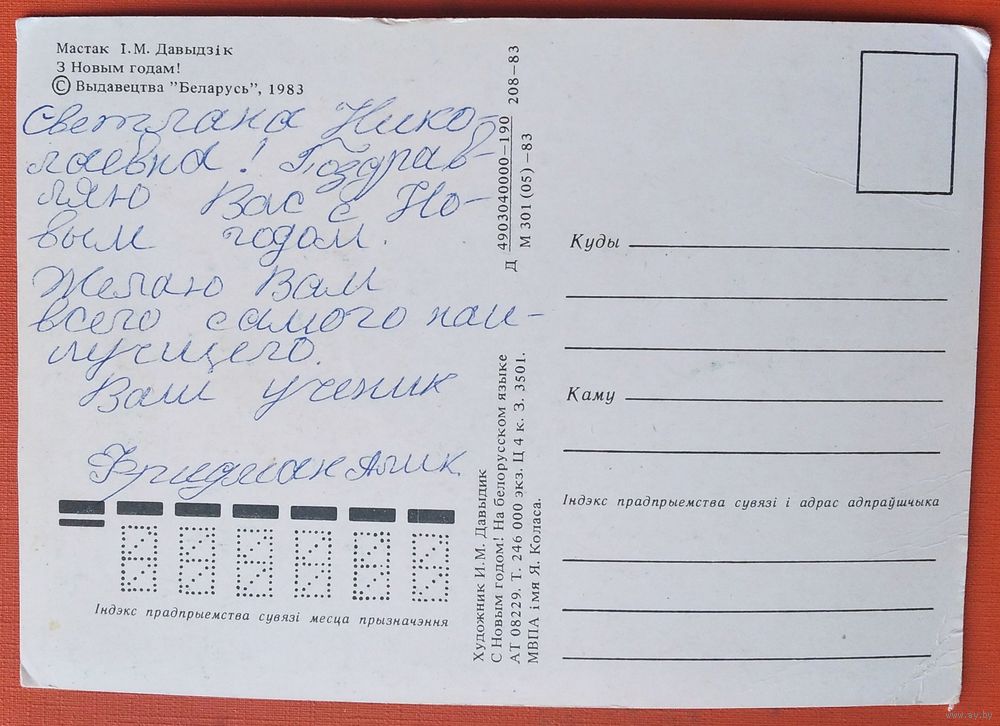 Мастак І.М. Давыдзік
З Новым годам!
© Выдавецтва "Беларусь", 1983
Светлана Нико-
лаевна! Поздрав-
ляю Вас с Но-
вым годом.
Желаю Вам
всего самого наи-
лучшего.
Ваш ученик
Фридман Алик
Індэкс прадпрыемства сувязі месца прызначэння
Художник И.М. Давыдик
С Новым годом! На белорусском языке
АТ 08229. Т. 246 000 экз. Ц 4 к. З. 3501.
МВПА імя Я. Коласа.
Д 4903040000—190 208—83
М 301 (05) —83
Куды
Каму
Індэкс прадпрыемства сувязі і адрас адпраўшчыка
www.ay.by